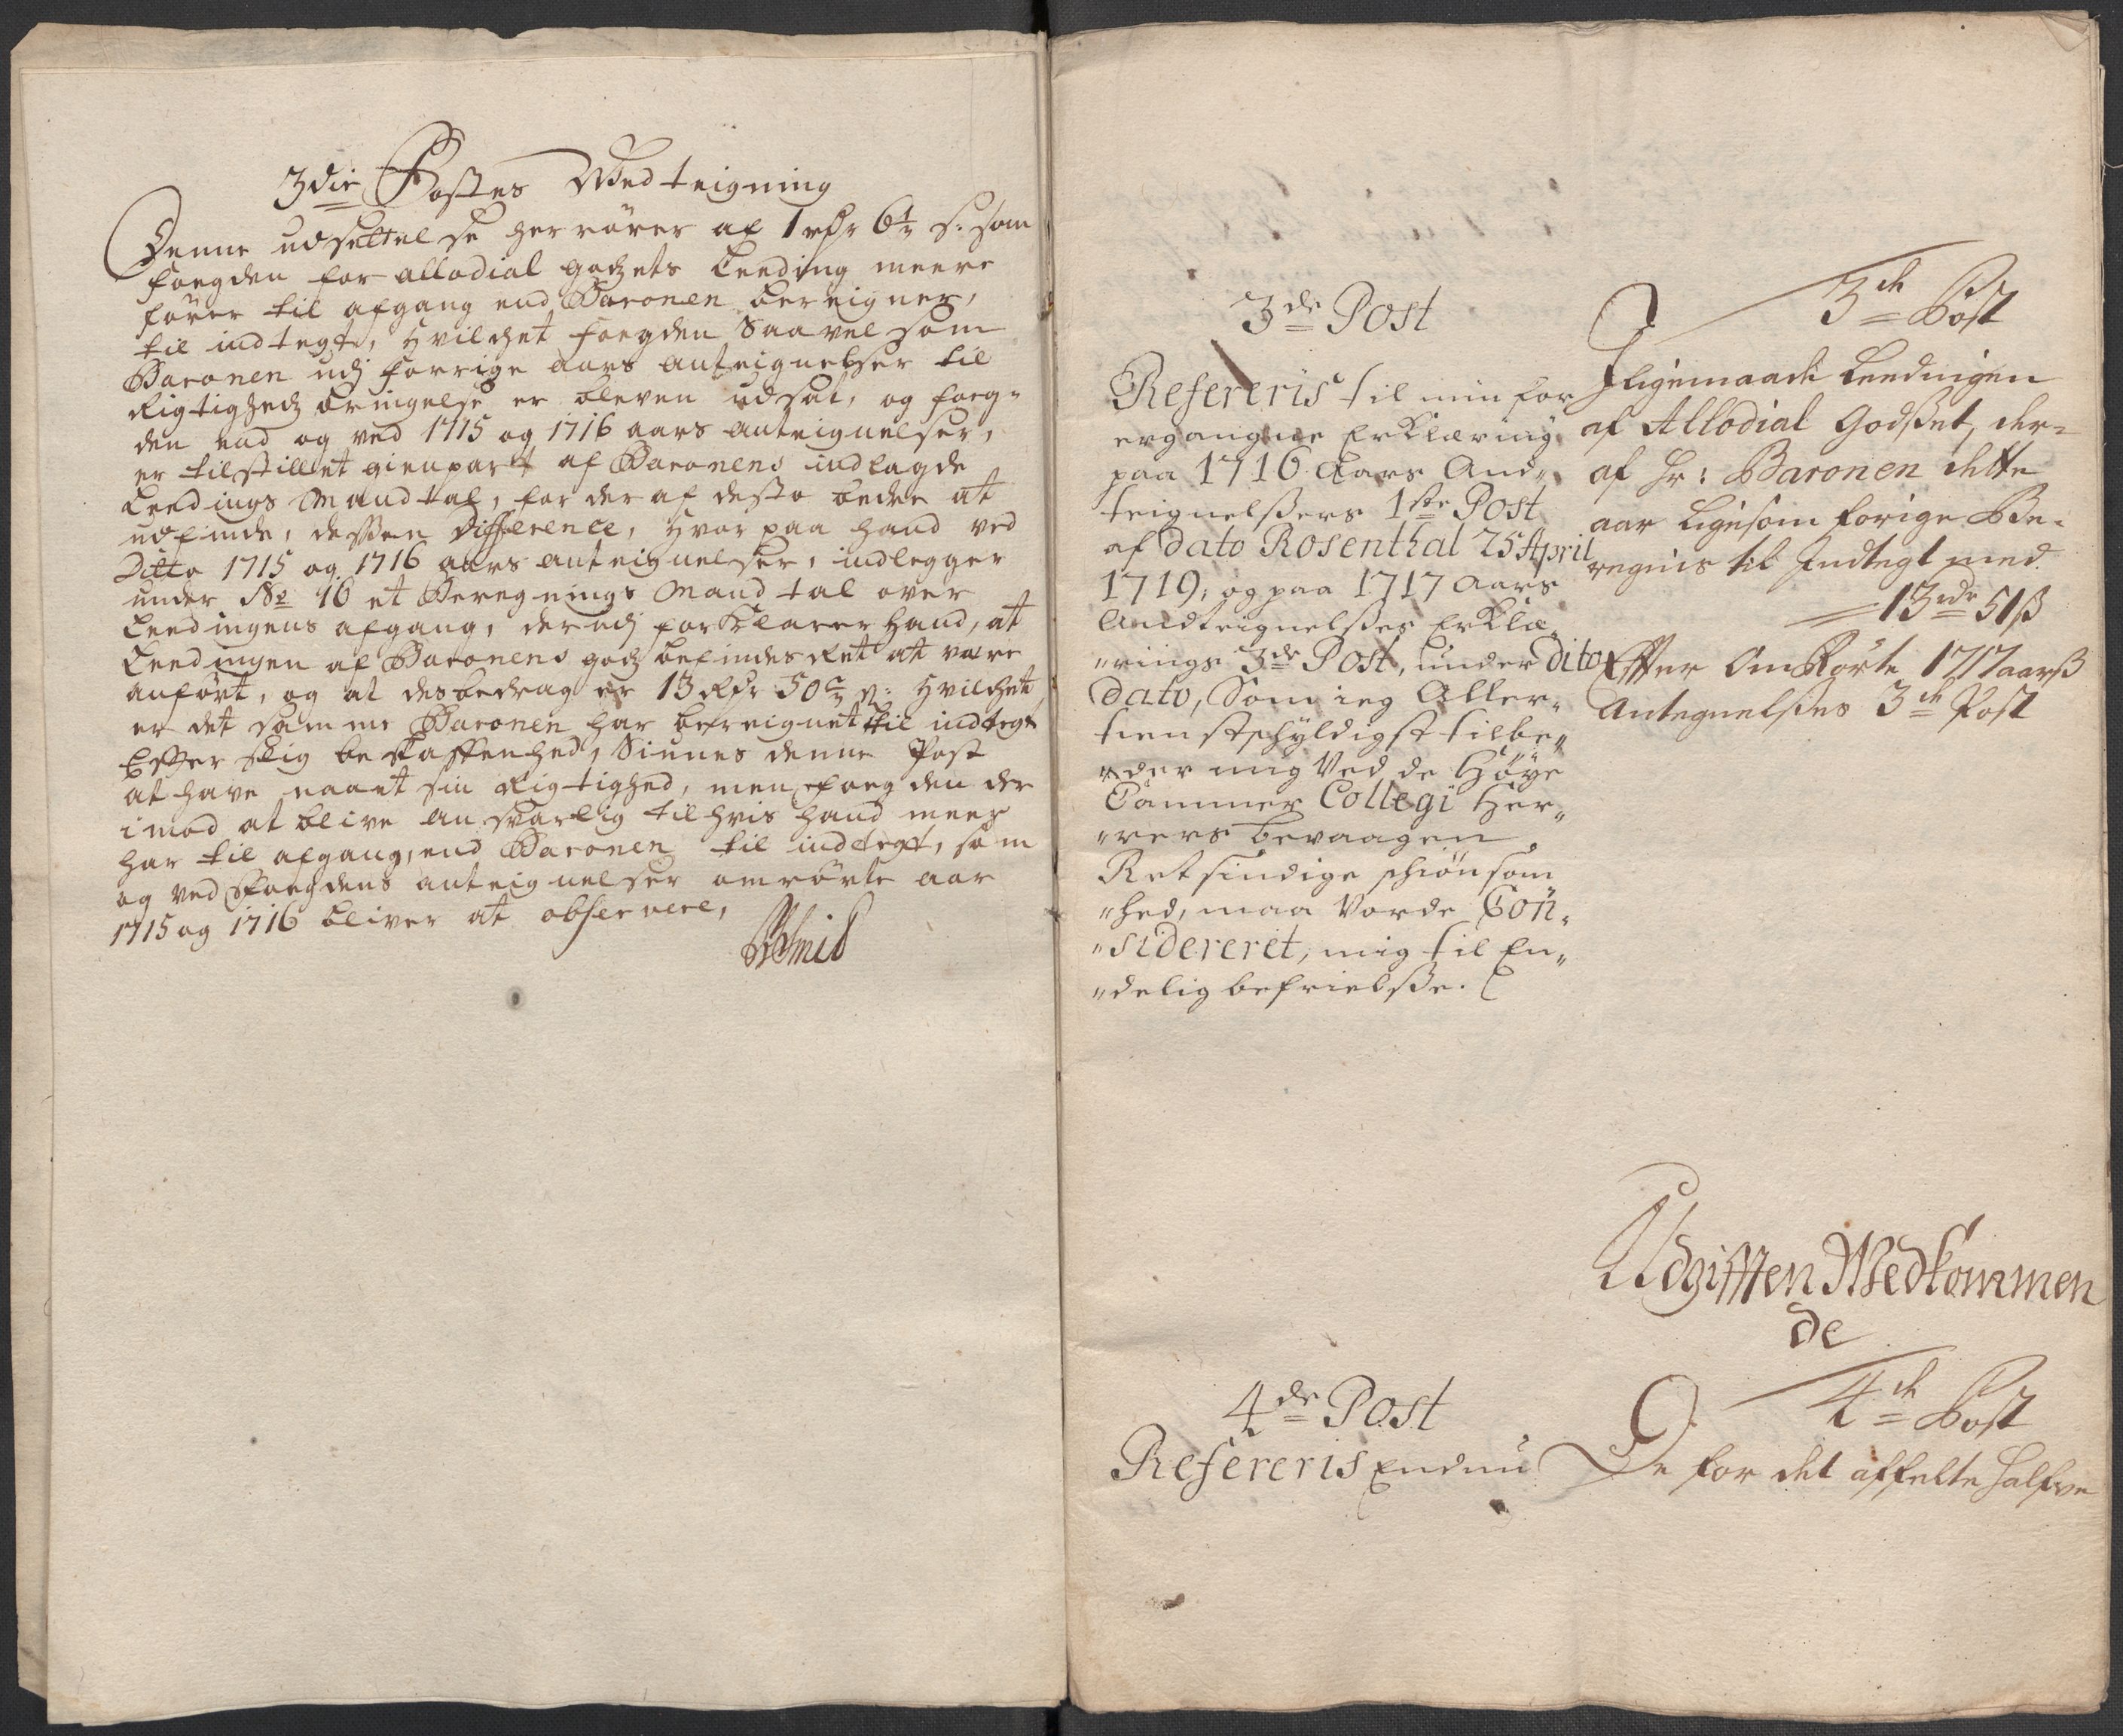 3die Postes Wedteigning
Denne udsettelse herrører af 1 rdr 6½ s: som
foegden for allodial godzets Leeding meere
fører til afgang end Baronen bereigner,
til indtegt, Hvilchet foegden Saavel som
Baronen udj forrige aars anteignelser til
Rigtighedz bringelse er bleven udsat, og foeg-
den end og ved 1715 og 1716 aars anteignelser,
er tilstillet gienpart af Baronens indlagde
Leedings Mandtal, for der af desto bedre at
udfinde, dessen Difference, Hvor paa hand ved
Ditto 1715 og 1716 aars anteignelser, indlegger
under No 16 et Beregnings Mandtal over
Leedingens afgang, derudj forklarer hand, at
Leedingen af Baronens godz befindes Ret at være
anført, og at des bedrag er 13 Rdr 50 Hvilchet
er det samme Baronen har bereignet til indtegt
Efter slig beskaffenhed, Siunes denne Post
at have naaet sin Rigtighed, men foegden der
imod at blive ansvarlig til hvis hand meer
har til afgang, end Baronen til indtegt, som
og ved foegdens anteignelser omrørte aar
1715 og 1716 bliver at observere,
Smid
3de Post
Refereris til min for
ergangne Erklæring
paa 1716 Aars And„
teignelsers 1ste Post
af dato Rosenthal 25 April
1719, og paa 1717 Aars
Andteignelses Erklæ„
„rings 3de Post, under dito
dato, Som ieg Aller„
tienstschyldigst tilbe„
„der mig Ved de Høye
Cammer Collegi Her„
„rers bevaagen
Retsindige schiønsom
„hed, maa Vorde Con„
„sidereret, mig til En„
„delig befrielse.
3de Post
Iligemaade Leedingen
af Allodial Godset, der=
af Hr: Baronen dette
aar Ligesom forige Be-
regnis til Indtegt med
13 rdr 51 ß
Efter Omrørte 1717 aarß
Antegnelses 3de Post
Udgifften Wedkommen
de
4de Post
Refereris Endnu
4de Post
De for det affelte halfve